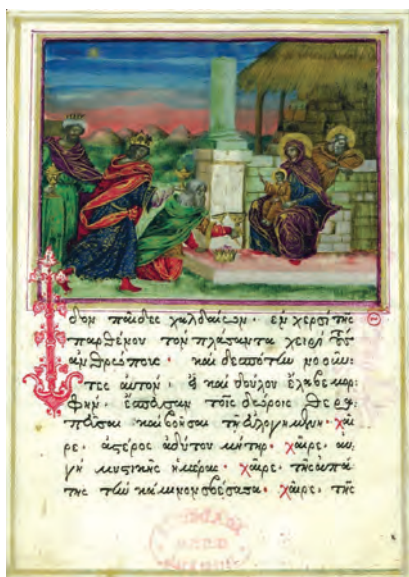 Ἴδον παῖδες χαλδαίων· ἐν χερσὶ τῆς
παρθένου τὸν πλάσαντα χειρὶ τοὺς
ἀνθρώπους· καὶ δεσπότην νοοῦν-
τες αὐτόν· εἰ καὶ δούλου ἔλαβε μορ-
φήν· ἔσπευσαν τοῖς δώροις θερα-
πεῦσαι καὶ βοῆσαι τῇ εὐλογημένῃ· χαῖ
ρε· ἀστέρος ἀδύτου μήτηρ· χαῖρε· αὐ-
γὴ μυστικῆς ἡμέρας· χαῖρε· τῆς ἀπά
της τὴν κάμινον σβέσασα· χαῖρε· τῆς